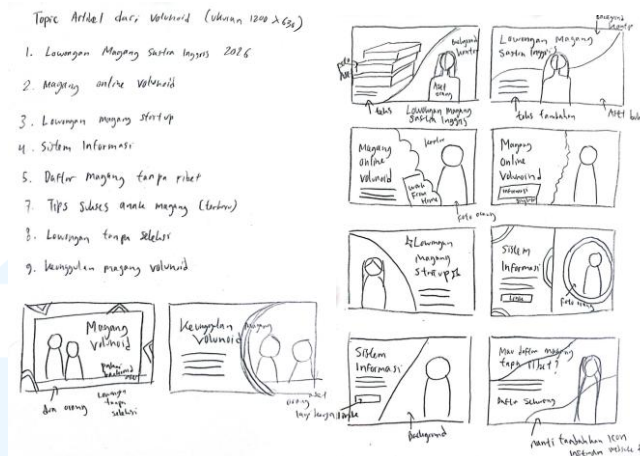 Topic Artikel dari Volunoid (ukuran 1200 x 630)
1. Lowongan Magang Sastra Inggris 2026
2. Magang online volunoid
3. Lowongan magang startup
4. Sistem Informasi
5. Daftar magang tanpa ribet
7. Tips sukses anak magang (terbaru)
8. Lowongan tanpa seleksi
9. keunggulan magang volunoid
Magang Volunoid
dua orang
Lowongan tanpa seleksi
Keunggulan magang volunoid
aset orang
Background kantor
Aset orang
teks
Lowongan magang sastra Inggris
Lowongan Magang Sastra Inggris
teks tambahan
Magang online volunoid
kantor
Work From Home
Foto orang
Magang Online Volunoid
Lowongan magang startup
Sistem Informasi
Foto orang
Sistem Informasi
Background
Mau daftar magang tanpa ribet?
Daftar Sekarang
nanti tambahkan icon